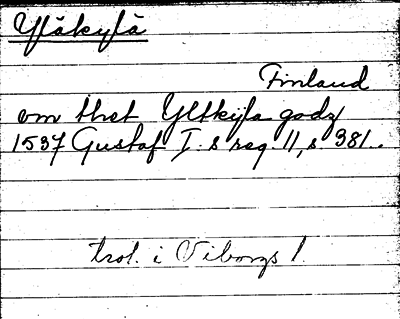 Yläkylä
Finland
om thet Yltkÿla godz
1537 Gustaf I:s reg. 11, s 381.
trol. i Viborgs l.